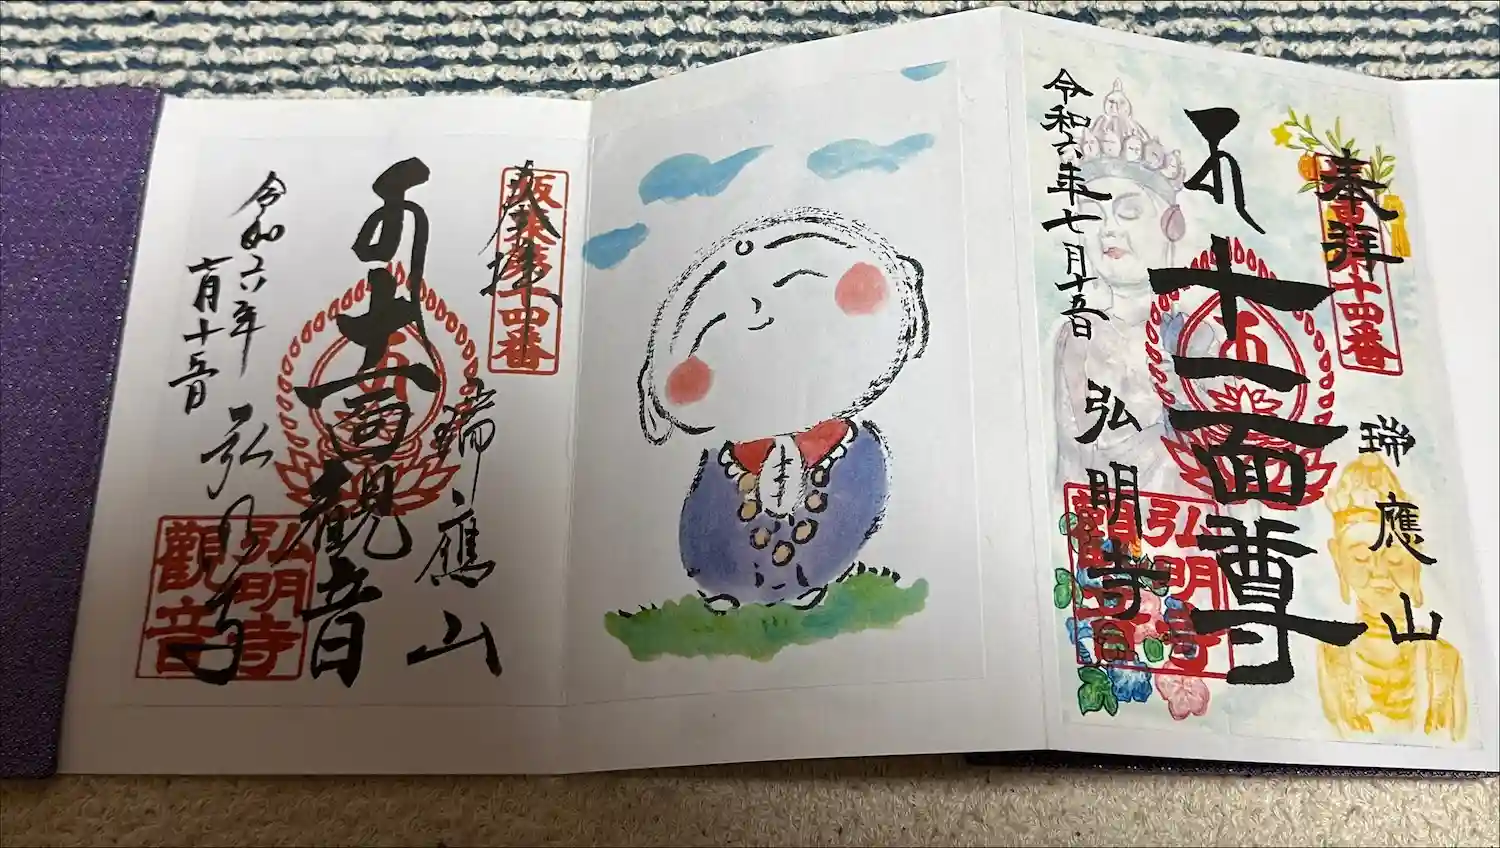 奉拝
坂東十四番
十一面尊
瑞應山
弘明寺
弘明寺
觀音
令和六年七月十五日
奉拝
坂東第十四番
十一面観音
瑞應山
弘明寺
弘明寺
觀音
令和六年
七月十五日